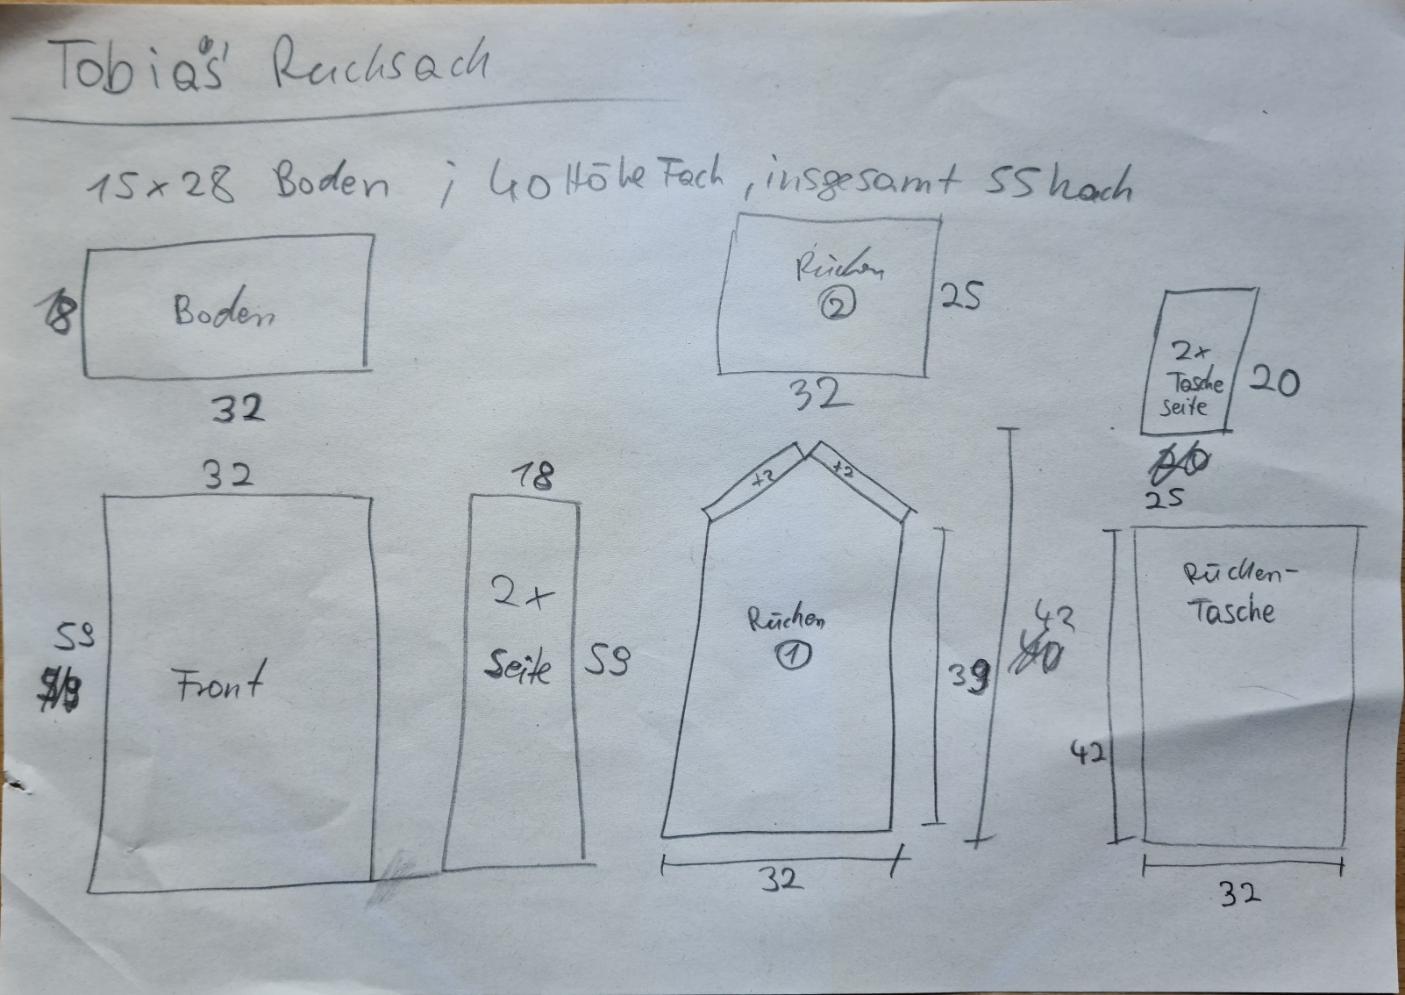 Tobias' Rucksack
15x28 Boden ; 40 Höhe Fach , insgesamt 55 hoch
18
Boden
32
Rücken
2
25
32
2x
Tasche
seite
20
25
32
59
Front
18
2x
Seite
59
+2
+2
Rücken
1
39
42
32
Rücken-
Tasche
42
32